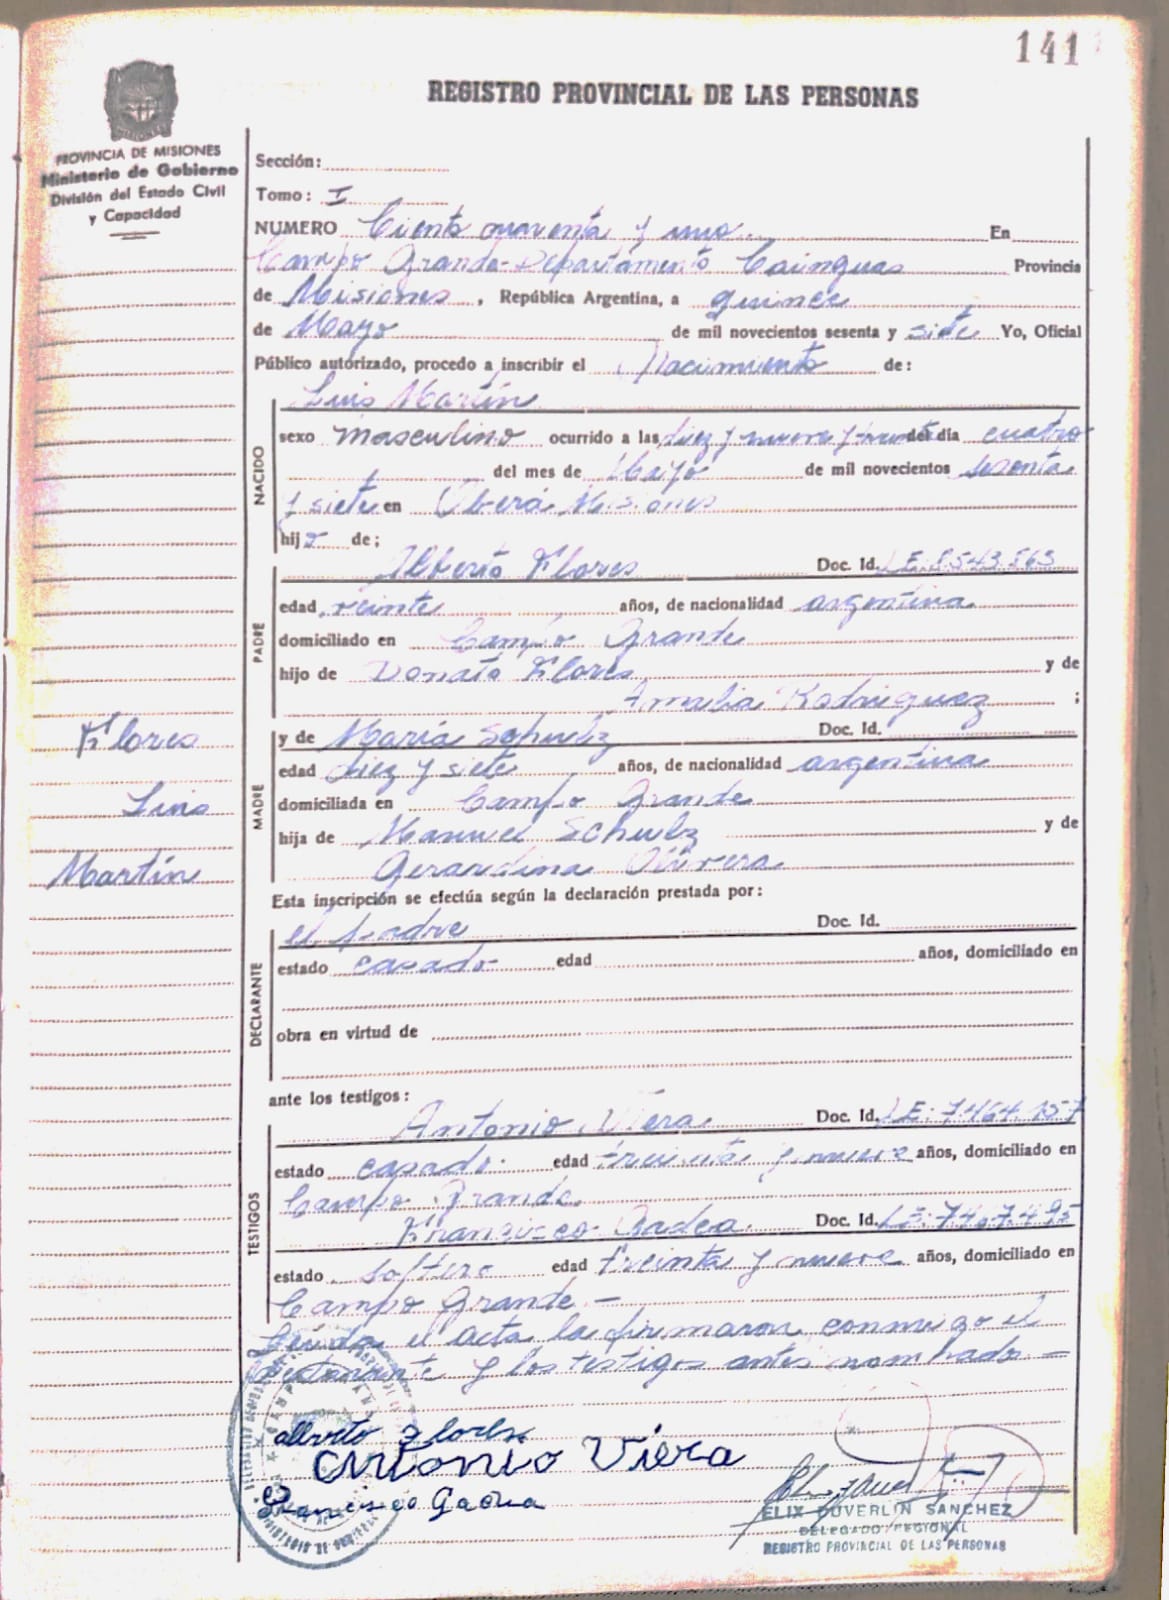 141
REGISTRO PROVINCIAL DE LAS PERSONAS
PROVINCIA DE MISIONES
Ministerio de Gobierno
División del Estado Civil
y Capacidad
Sección:
Tomo: I
NUMERO Ciento cuarenta y uno En
Campo Grande-Departamento Cainguas Provincia
de Misiones, República Argentina, a quince
de Mayo de mil novecientos sesenta y siete Yo, Oficial
Público autorizado, procedo a inscribir el Nacimiento de:
Luis Martín
NACIDO
sexo masculino ocurrido a las diez y nueve y treinta del día cuatro
del mes de Mayo de mil novecientos sesenta
y siete en Oberá Misiones
hijo de;
Alberto Flores Doc. Id. L.E: 8.543.563
PADRE
edad veinte años, de nacionalidad argentina
domiciliado en Campo Grande
hijo de Donato Flores y de
Amalia Rodriguez ;
Flores
Luis
Martín
y de María Schulz Doc. Id.
MADRE
edad diez y siete años, de nacionalidad argentina
domiciliada en Campo Grande
hija de Manuel Schulz y de
Gerardina Olivera
Esta inscripción se efectúa según la declaración prestada por:
el padre Doc. Id.
DECLARANTE
estado casado edad años, domiciliado en
obra en virtud de
ante los testigos:
Antonio Viera Doc. Id. L.E: 7.464.157
TESTIGOS
estado casado edad treinta y nueve años, domiciliado en
Campo Grande
Francisco Gadea Doc. Id. L.E: 7.467.495
estado soltero edad treinta y nueve años, domiciliado en
Campo Grande.-
Leída el acta la firmaron conmigo el
declarante y los testigos antes nombrado -
alberto Flores
Antonio Viera
Francisco Gadea
ELIX DUVERLIN SANCHEZ
DELEGADO REGIONAL
REGISTRO PROVINCIAL DE LAS PERSONAS